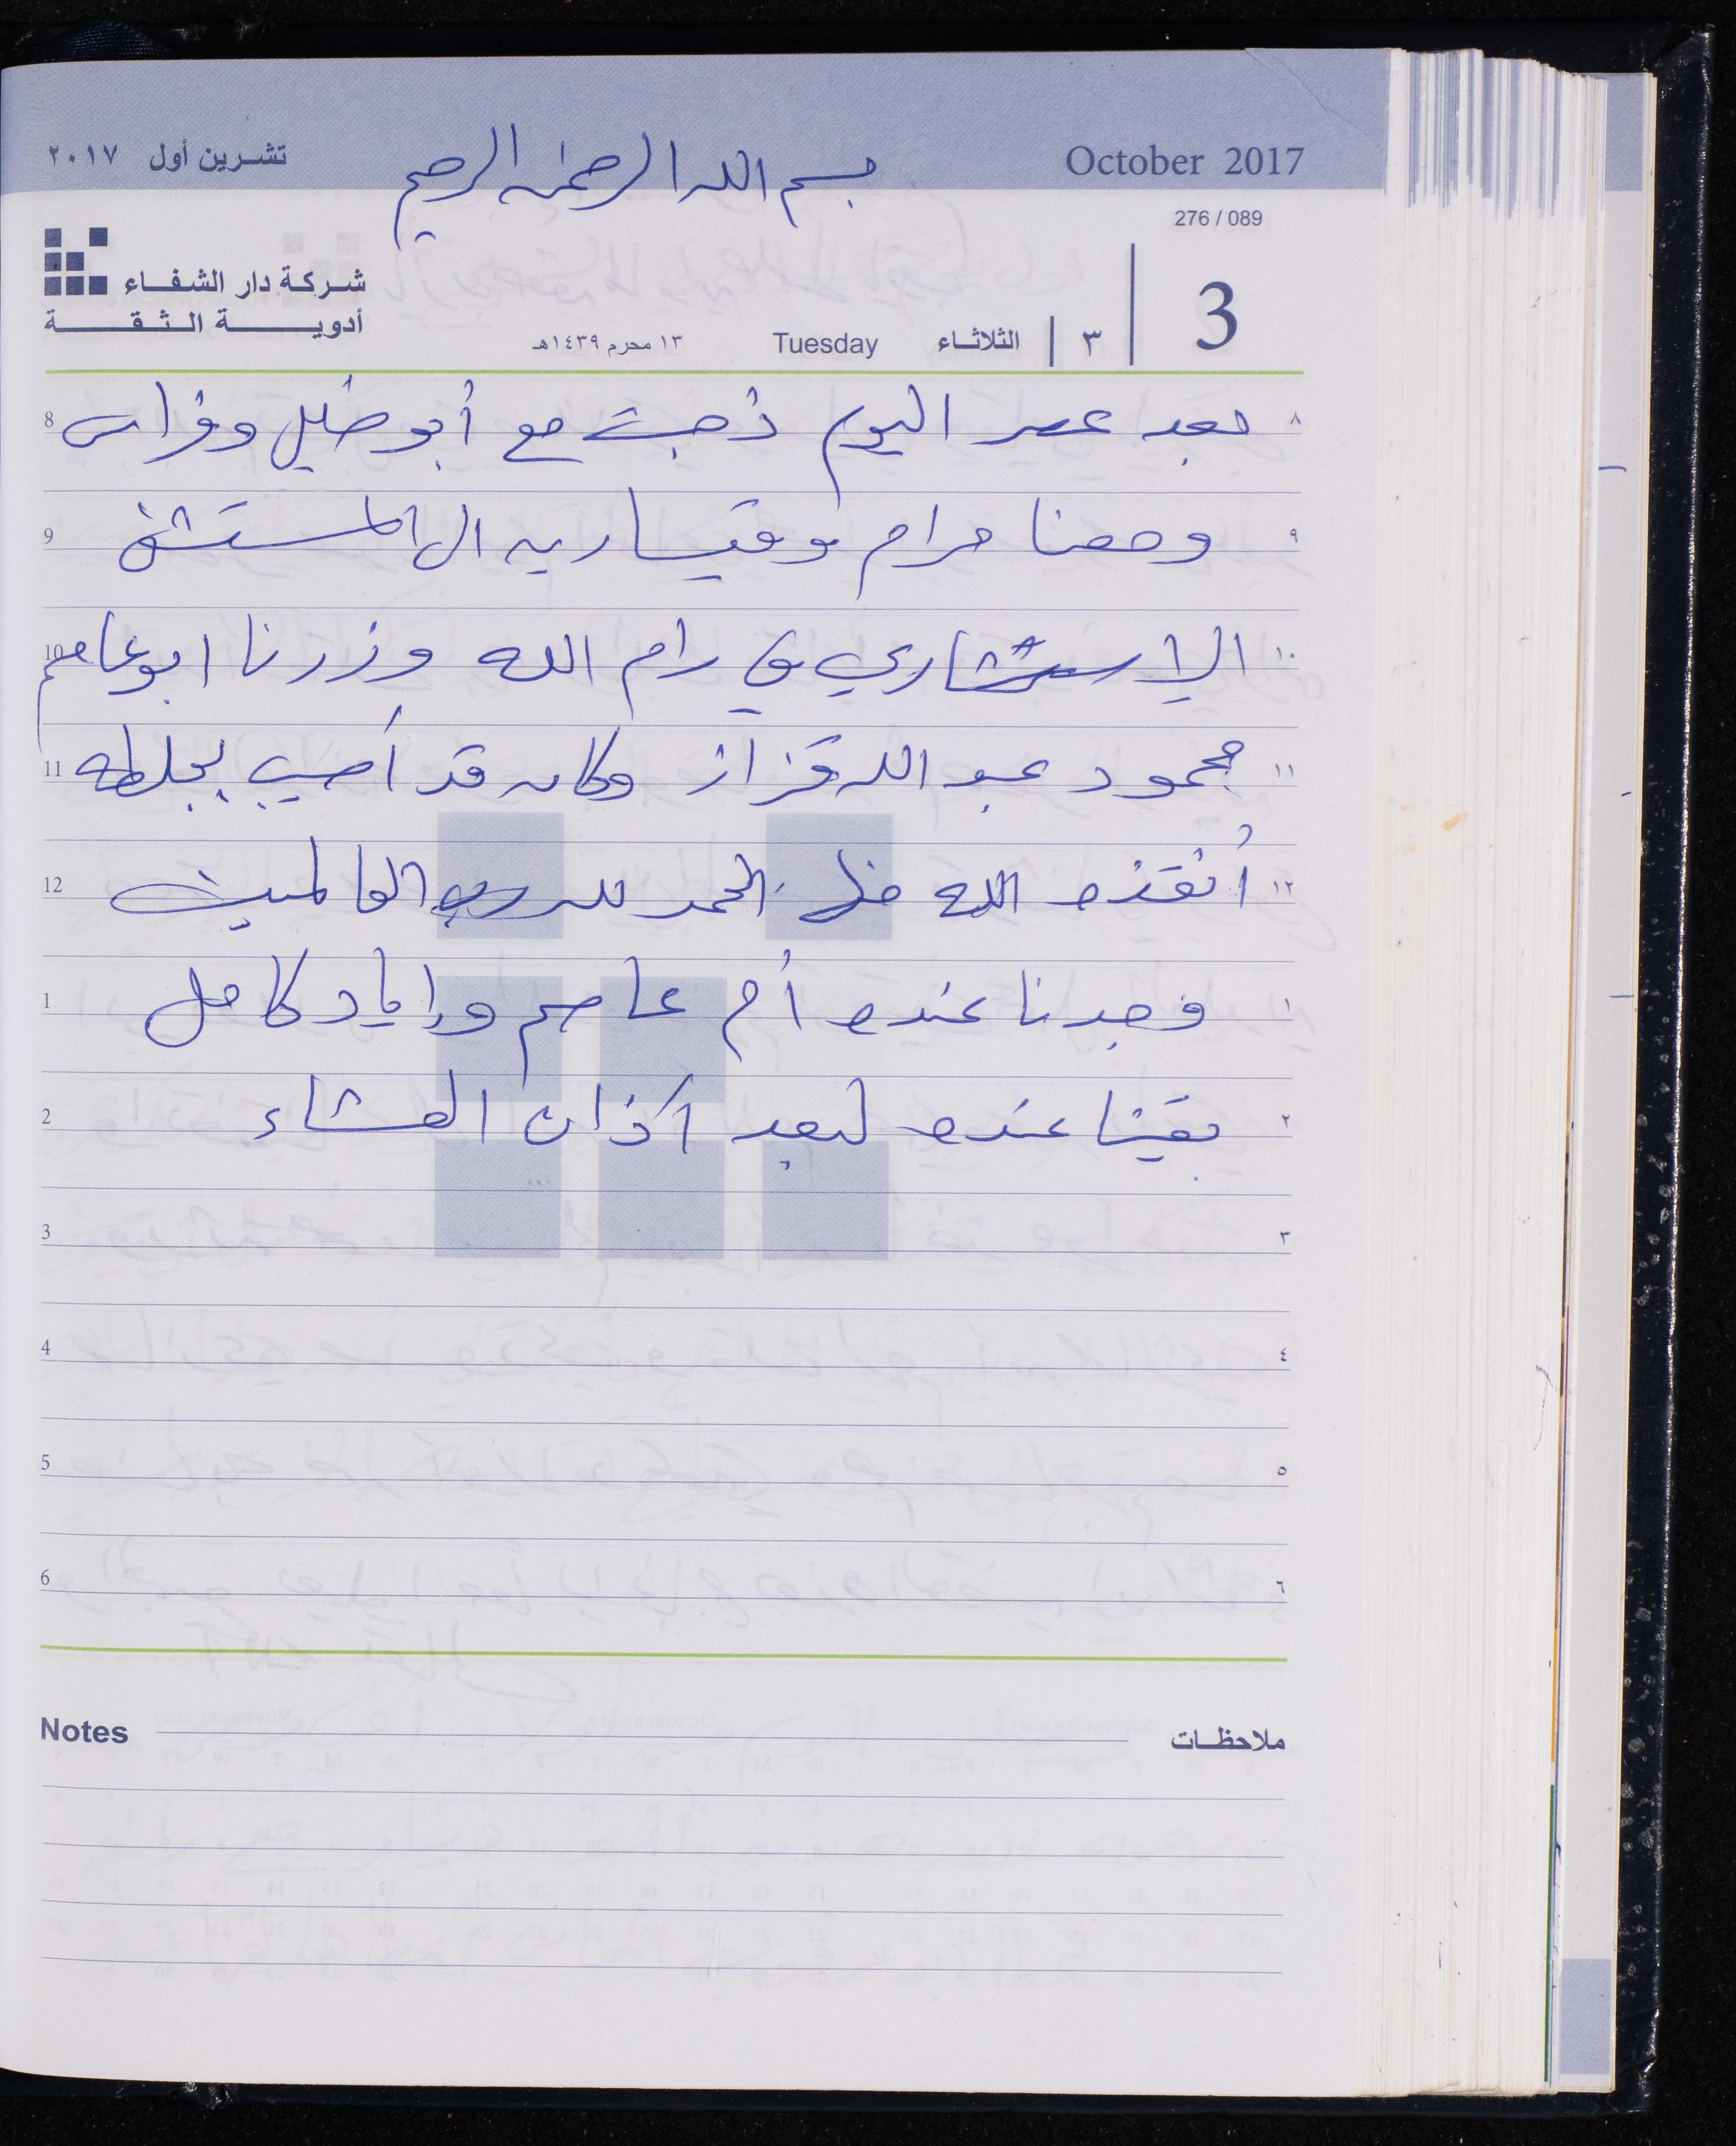 تشرين أول ٢٠١٧
بسم الله الرحمن الرحيم
October 2017
276 / 089
شركة دار الشفاء
أدوية الثقة
١٣ محرم ١٤٣٩هـ
Tuesday
الثلاثاء
٣
3
8 بعد عصر اليوم ذهبت مع أبو خليل وفراس ٨
9 ومعنا مرام وقيساريه الى المستشفى ٩
10 الاستشاري في رام الله وزرنا ابو عاصم ١٠
11 محمود عبد الله قزاز وكان قد أصيب بجلطه ١١
12 أنقذه الله منها الحمد لله رب العالمين ١٢
1 وجدنا عنده أم عاصم واياد كامل ١
2 بقينا عنده لبعد آذان العشاء ٢
3 ٣
4 ٤
5 ٥
6 ٦
Notes ملاحظات